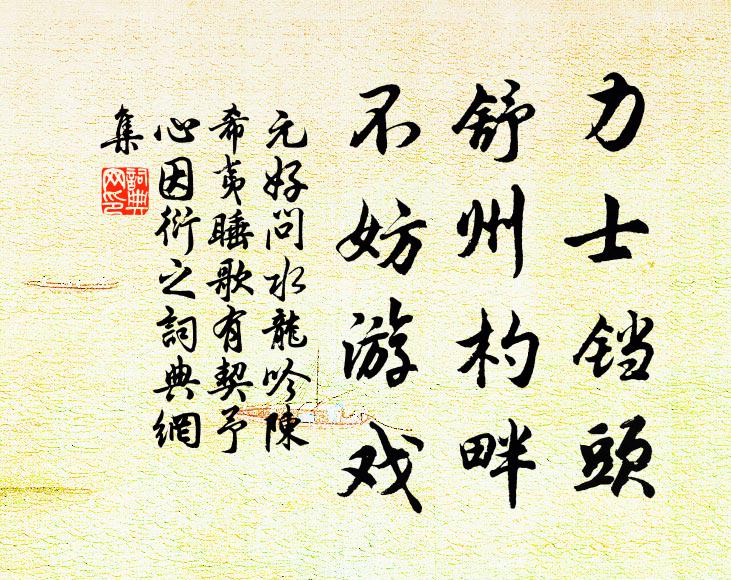 力士铛頭
舒州杓畔
不妨游戏
元好问水龍吟陳
希夷睡歌有契予
心因衍之詞典網
集
詞典
网印